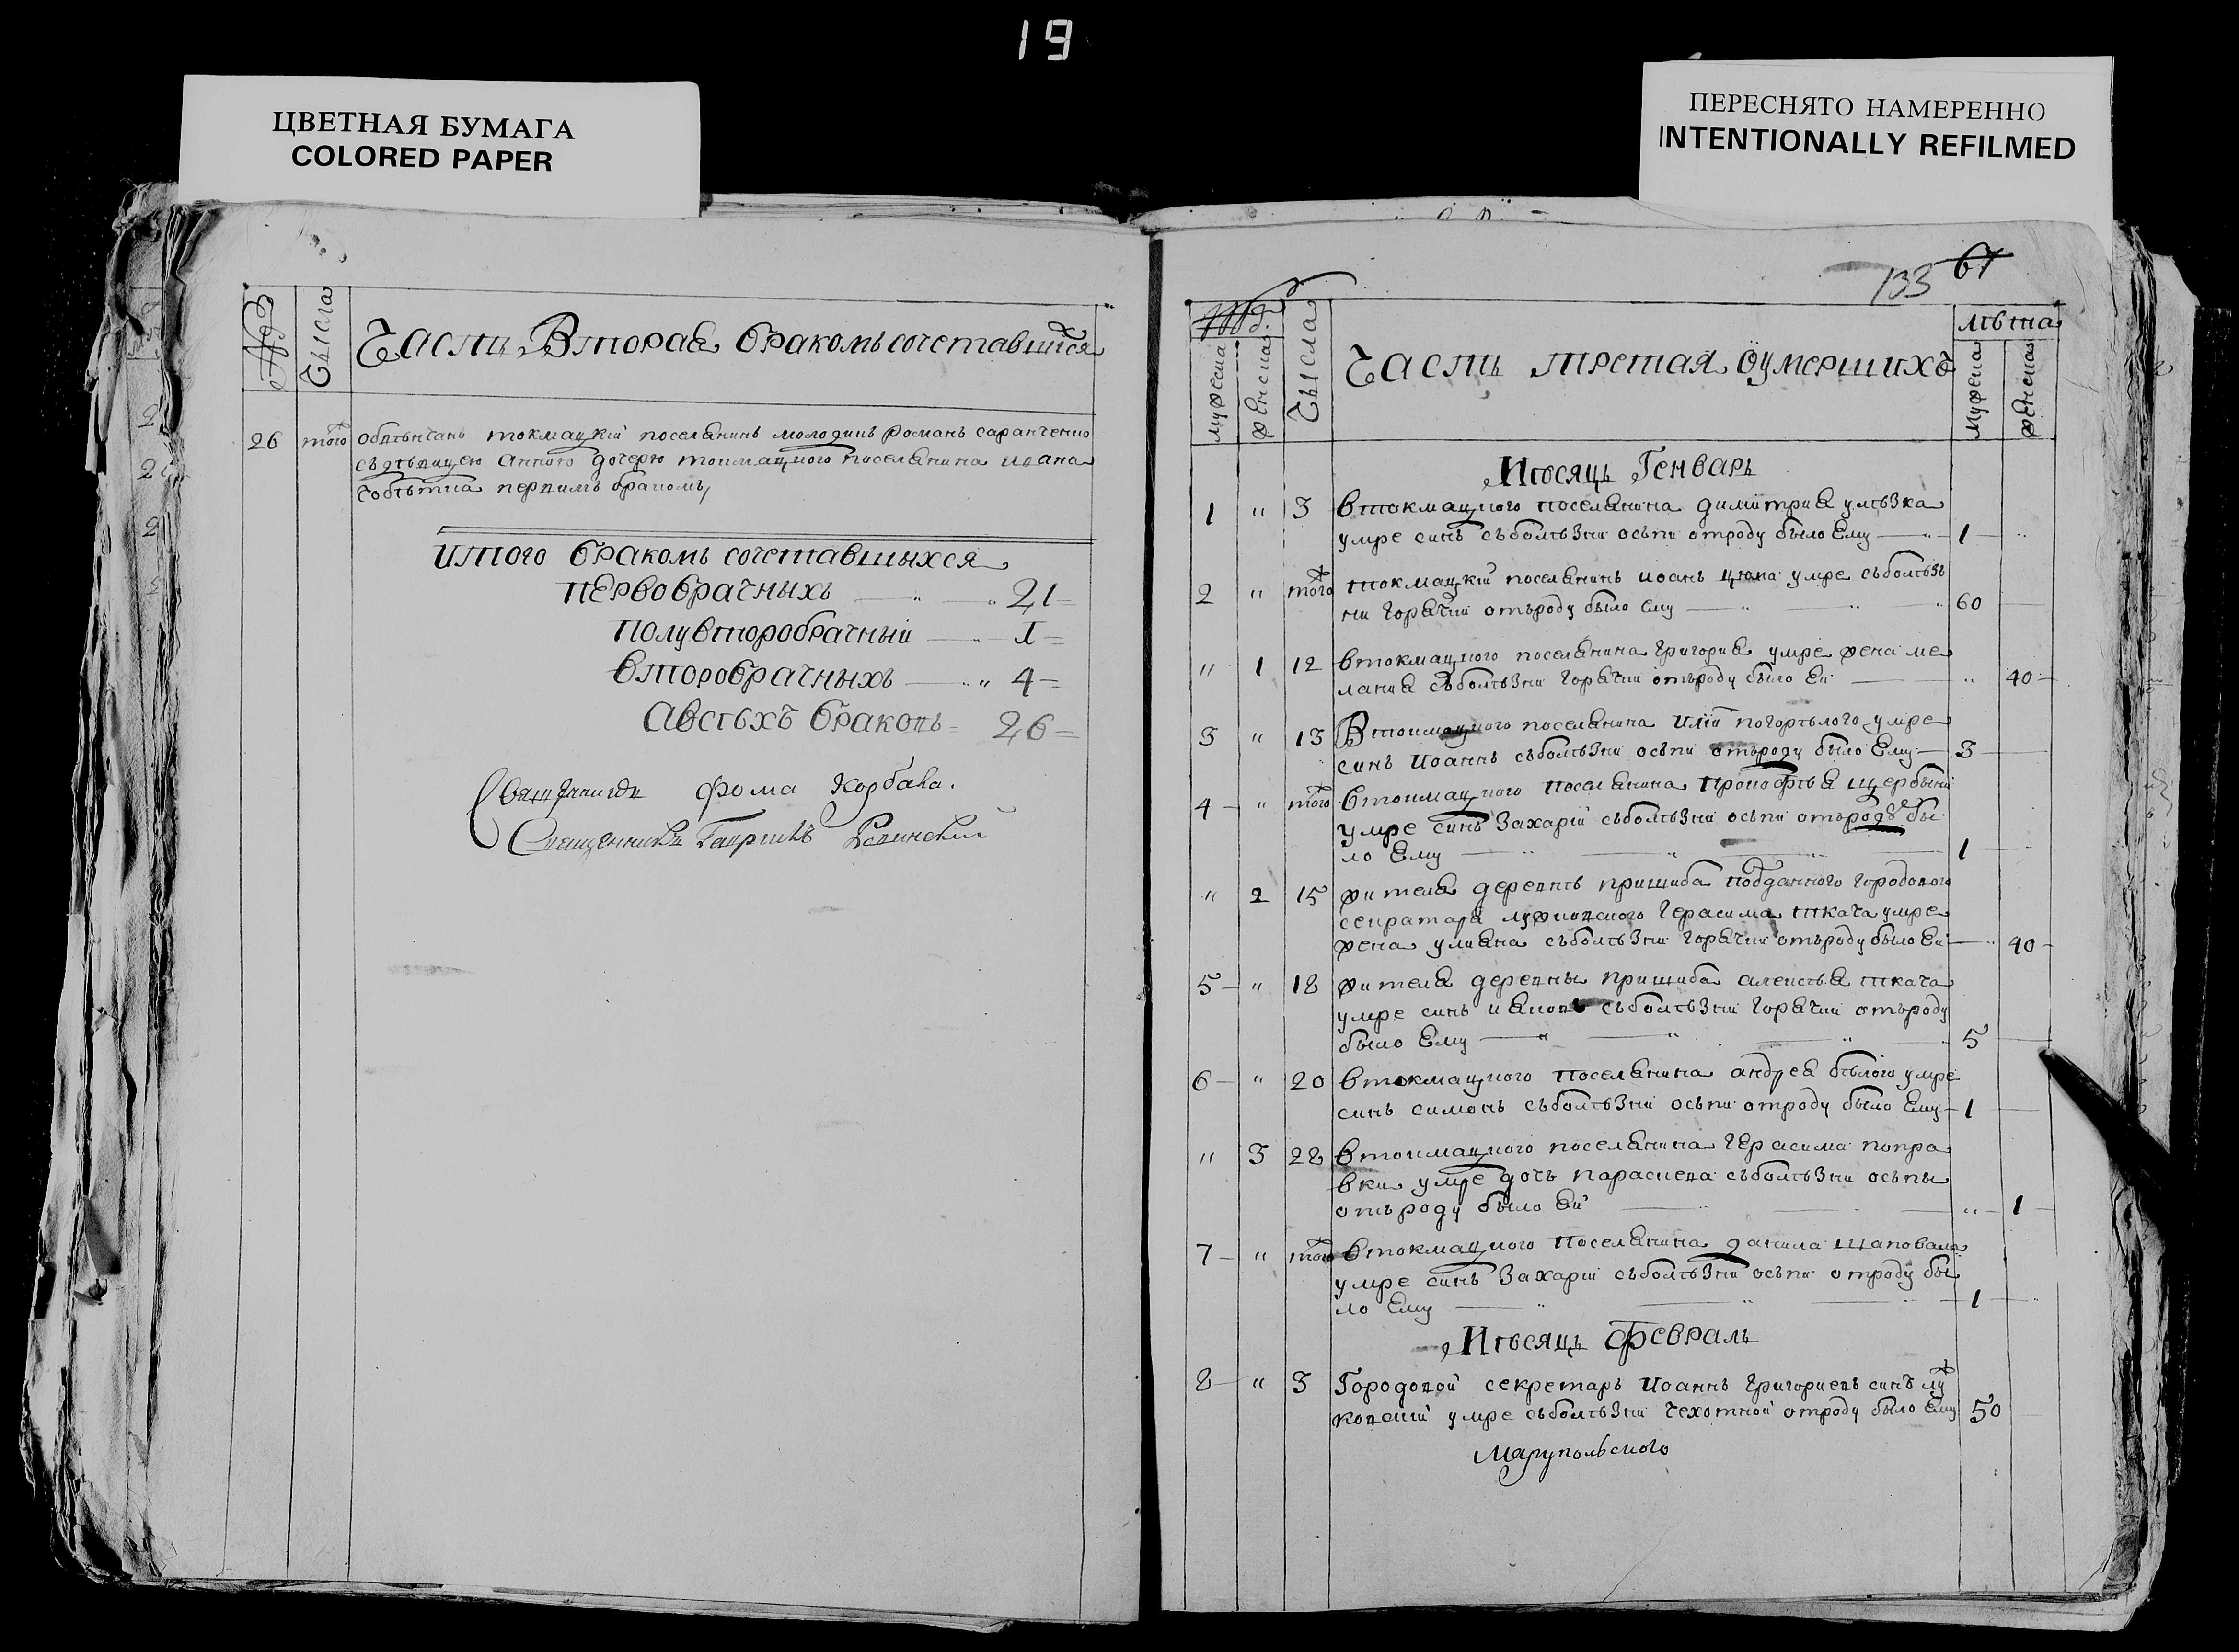 19
ЦВЕТНАЯ БУМАГА
COLORED PAPER
ПЕРЕСНЯТО НАМЕРЕННО
INTENTIONALLY REFILMED
Числа
Часть Вторая бракомъ сочетавшихся
26 того обвѣнчанъ токмацкій поселянинъ молодикъ романъ саранченко
съ дѣвицею анною дочерю токмацкого поселянина иоана
первимъ бракомъ
итого бракомъ сочетавшыхся
первобрачныхъ 21
полувторобрачный 1
второбрачныхъ 4
Авсѣхъ браковъ 26
Священникъ фома Корбака.
Священникъ Гавриилъ
133 61
мужеска женска Числа
Часть третая Оумершихъ
лѣта
мужеска женска
Мѣсяцъ Генварь
1 " 3 втокмацкого поселянина димитрия
умре синъ съболѣзни оспи отроду было Ему 1
2 " того токмацкій поселянинъ иоанъ цюпа умре съболѣз
ни горячки отъроду было ему 60
" 1 12 втокмацкого поселянина григория умре жена ме
лания съболѣзни горячки отъроду было Ей " 40
3 " 13 Втокмацкого поселянина илїи погорѣлого умре
синъ Иоаннъ съболѣзни осъпи отъроду было Ему 3
4 " того втокмацкого поселянина Прокофѣя щербини
умре синъ Захарій съболѣзни осъпи отъроду бы
ло Ему 1
" 2 15 жителя деревнѣ пришиба подданного городового
секратаря герасима ткача умре
жена улияна съболѣзни горячки отъроду было Ей 40
5 " 18 жителя деревны пришиба алексѣя ткача
умре синъ ияковъ съболѣзни горячки отъроду
было Ему 5
6 " 20 втокмацкого поселянина андрея бѣлого умре
синъ симонъ съболѣзни осъпи отроду было Ему 1
" 3 28 втокмацкого поселянина герасима попра
вки умре дочъ параскева съболѣзни осъпы
отъроду было Ей " 1
7 " того втокмацкого поселянина данила шаповала
умре синъ Захарій съболѣзни осъпи отроду бы
ло Ему 1
Мѣсяцъ февраль
8 " 3 Городовой секретарь Иоаннъ григориевъ синъ
умре съболѣзни чехотной отроду было Ему 50
Марупольского